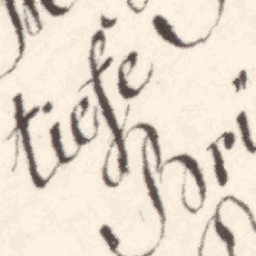 tiefe
Bri